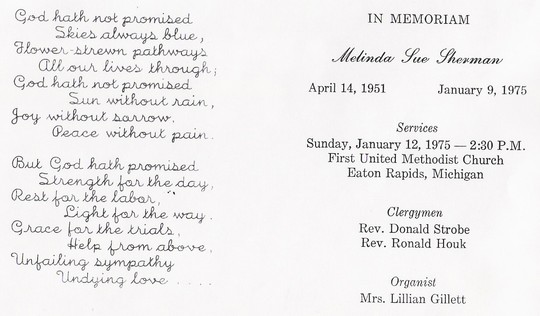 God hath not promised
Skies always blue,
Flower-strewn pathways
All our lives through;
God hath not promised
Sun without rain,
Joy without sorrow,
Peace without pain.
But God hath promised
Strength for the day,
Rest for the labor,
Light for the way.
Grace for the trials,
Help from above,
Unfailing sympathy
Undying love ....
IN MEMORIAM
Melinda Sue Sherman
April 14, 1951 January 9, 1975
Services
Sunday, January 12, 1975 — 2:30 P.M.
First United Methodist Church
Eaton Rapids, Michigan
Clergymen
Rev. Donald Strobe
Rev. Ronald Houk
Organist
Mrs. Lillian Gillett